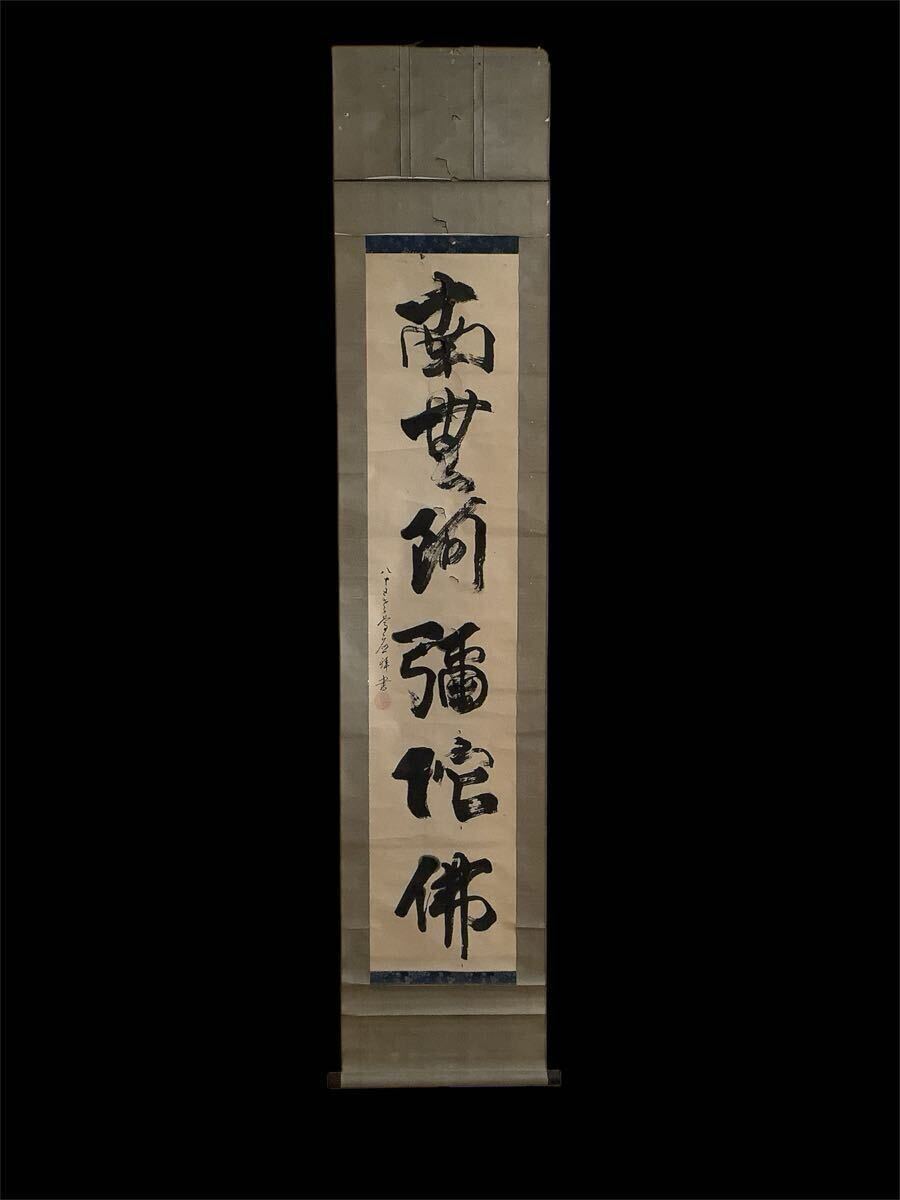 南無阿彌陀佛
八十五
拜書